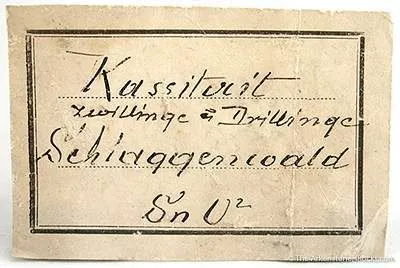 Kassiterit
Zwillinge & Drillinge
Schlaggenwald
Sn O²
© The Arkenstone/iRocks.com